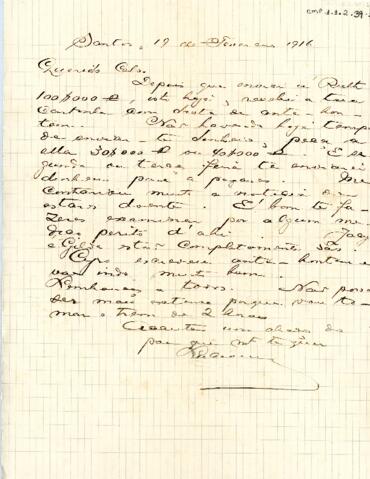 Santos, 19 de Fevereiro 1916
Querido Celso.
Depois que enviei á Ruth
100$000, isto hoje, recebi a tua
cartinha com data de ante-hon-
tem. Não havendo hoje tempo
de enviar te dinheiro, peça a
ella 30$000 ou 40$000. E se-
gunda ou terça feira te enviarei
dinheiro para a pagares. Me
contrariou muito a noticia de
estares doente. E' bom te fa-
zeres examinar por algum me-
dico perito d'ahi.
e Gilda estão completamente sãs.
Cyro escreveu ante-hontem e
vai indo muito bem.
Lembranças a todos. Não posso
ser mais extenso porque vou to-
mar o trem de 2 horas
Acceita um abraço do
pae que mto te quer